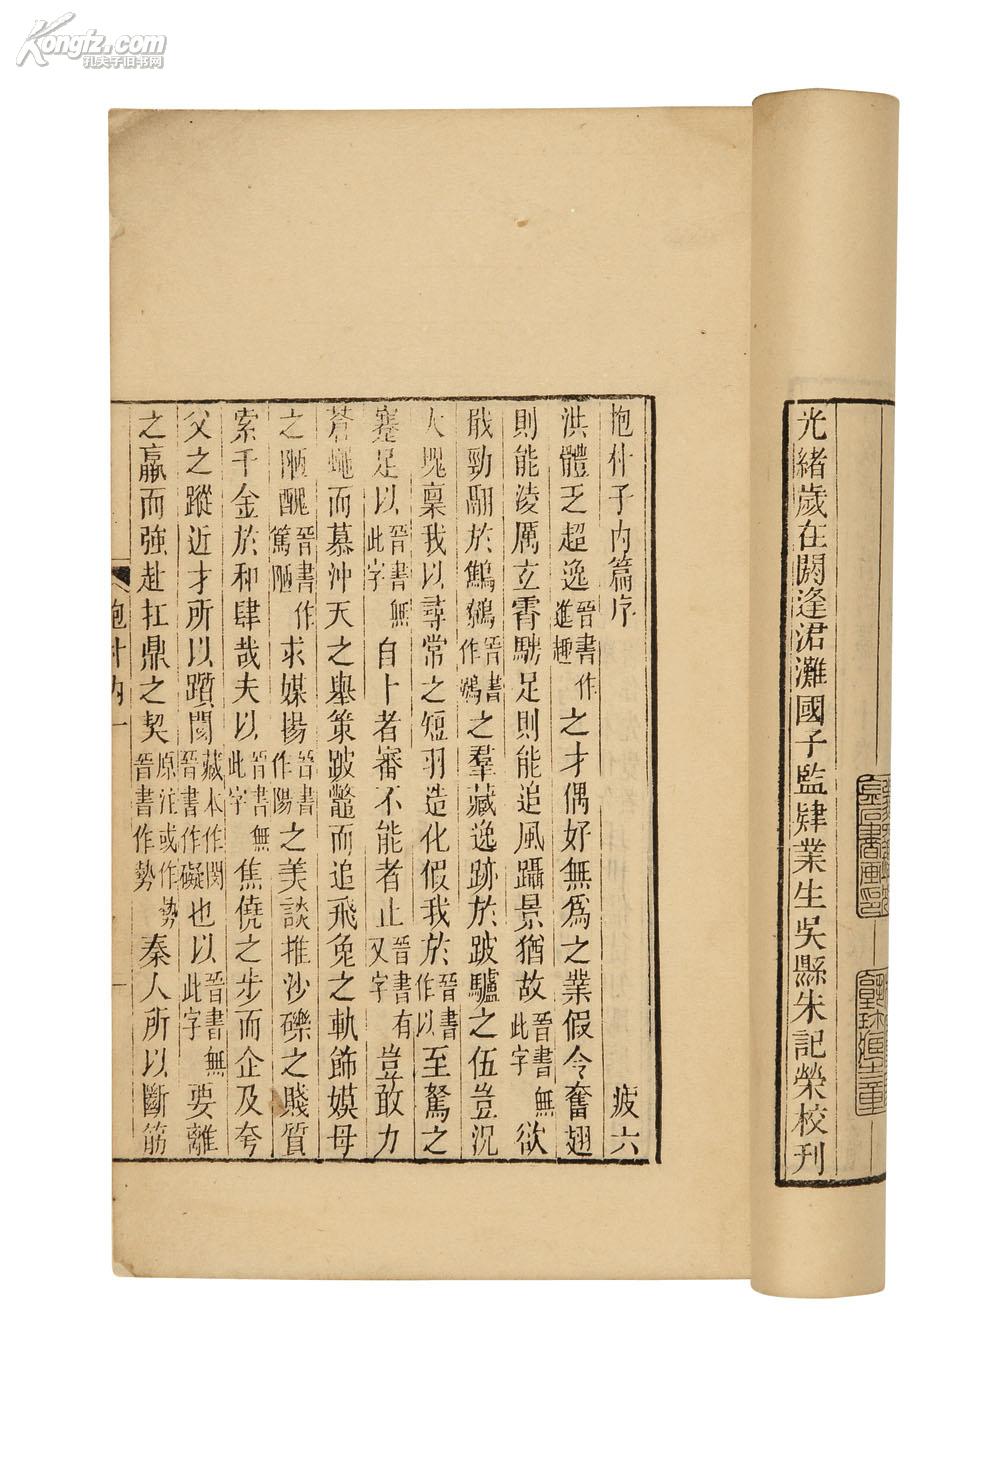 Kongfz.com
孔夫子旧书网
光緒歲在閼逢涒灘國子監肄業生吳縣朱記榮校刊
抱朴子內篇序 疲六
洪體乏超逸晉書作進趣之才偶好無爲之業假令奮翅
則能淩厲玄霄騁足則能追風躡景猶故晉書無此字欲
戢勁翮於鷦鷃晉書作鷃之羣藏逸跡於跛驢之伍豈況
大塊稟我以尋常之短羽造化假我於晉書作以至駑之
蹇足以晉書無此字自卜者審不能者止晉書有又字豈敢力
蒼蠅而慕沖天之舉策跛鼈而追飛兔之軌飾嫫母
之陋醜晉書作篤陋求媒揚晉書作陽之美談推沙礫之賤質
索千金於和肆哉夫以晉書無此字焦僥之步而企及夸
父之蹤近才所以躓閡藏本作閡晉書作礙也以晉書無此字要離
之羸而強赴扛鼎之契原注或作勢晉書作勢秦人所以斷筋
抱朴內一